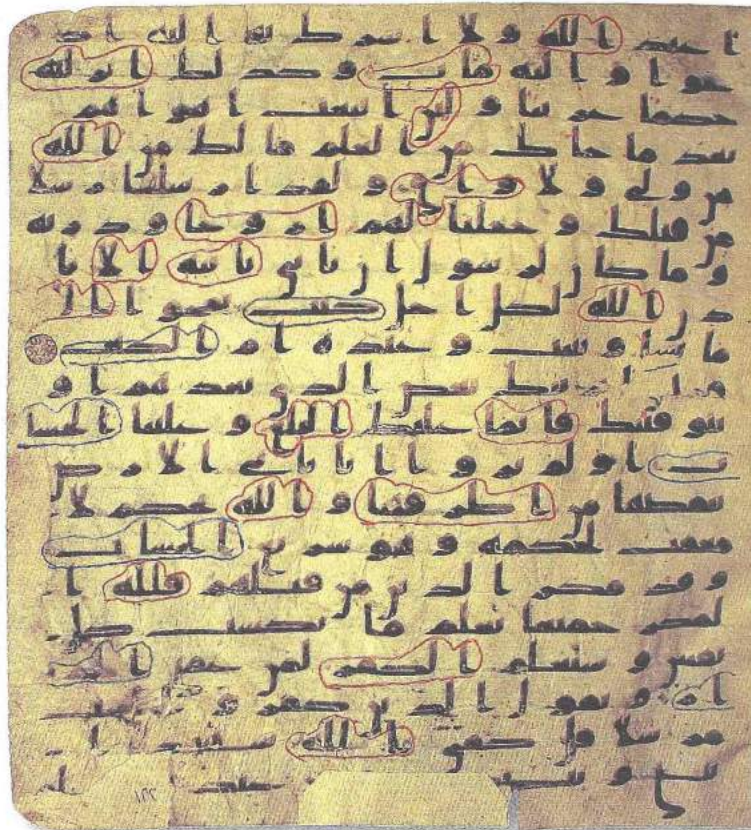 ن اعبد الله ولا اشرك به اليه اد
عوا واليه ماب وكذلك انزلنه
حكما عربيا ولئن اتبعت اهواهم
بعد ما جاك من العلم ما لك من الله
من ولي ولا واق ولقد ارسلنا رسلا
من قبلك وجعلنا لهم ازوجا وذرية
وما كان لرسول ان ياتي باية الا با
ذن الله لكل اجل كتب يمحوا الله
ما يشا ويثبت وعنده ام الكتب
نرينك بعض الذي نعدهم او
نتوفينك فانما عليك البلغ وعلينا الحسا
ب اولم يروا انا ناتي الارض
ننقصها من اطرفها والله يحكم لا
معقب لحكمه وهو سريع الحساب
وقد مكر الذين من قبلهم فلله ا
لمكر جميعا يعلم ما تكسب كل
نفس وسيعلم الكفر لمن عقبى الد
ار ويقول الذين كفروا لست
مرسلا قل كفى بالله شهيدا
بيني وبينكم عنده علم